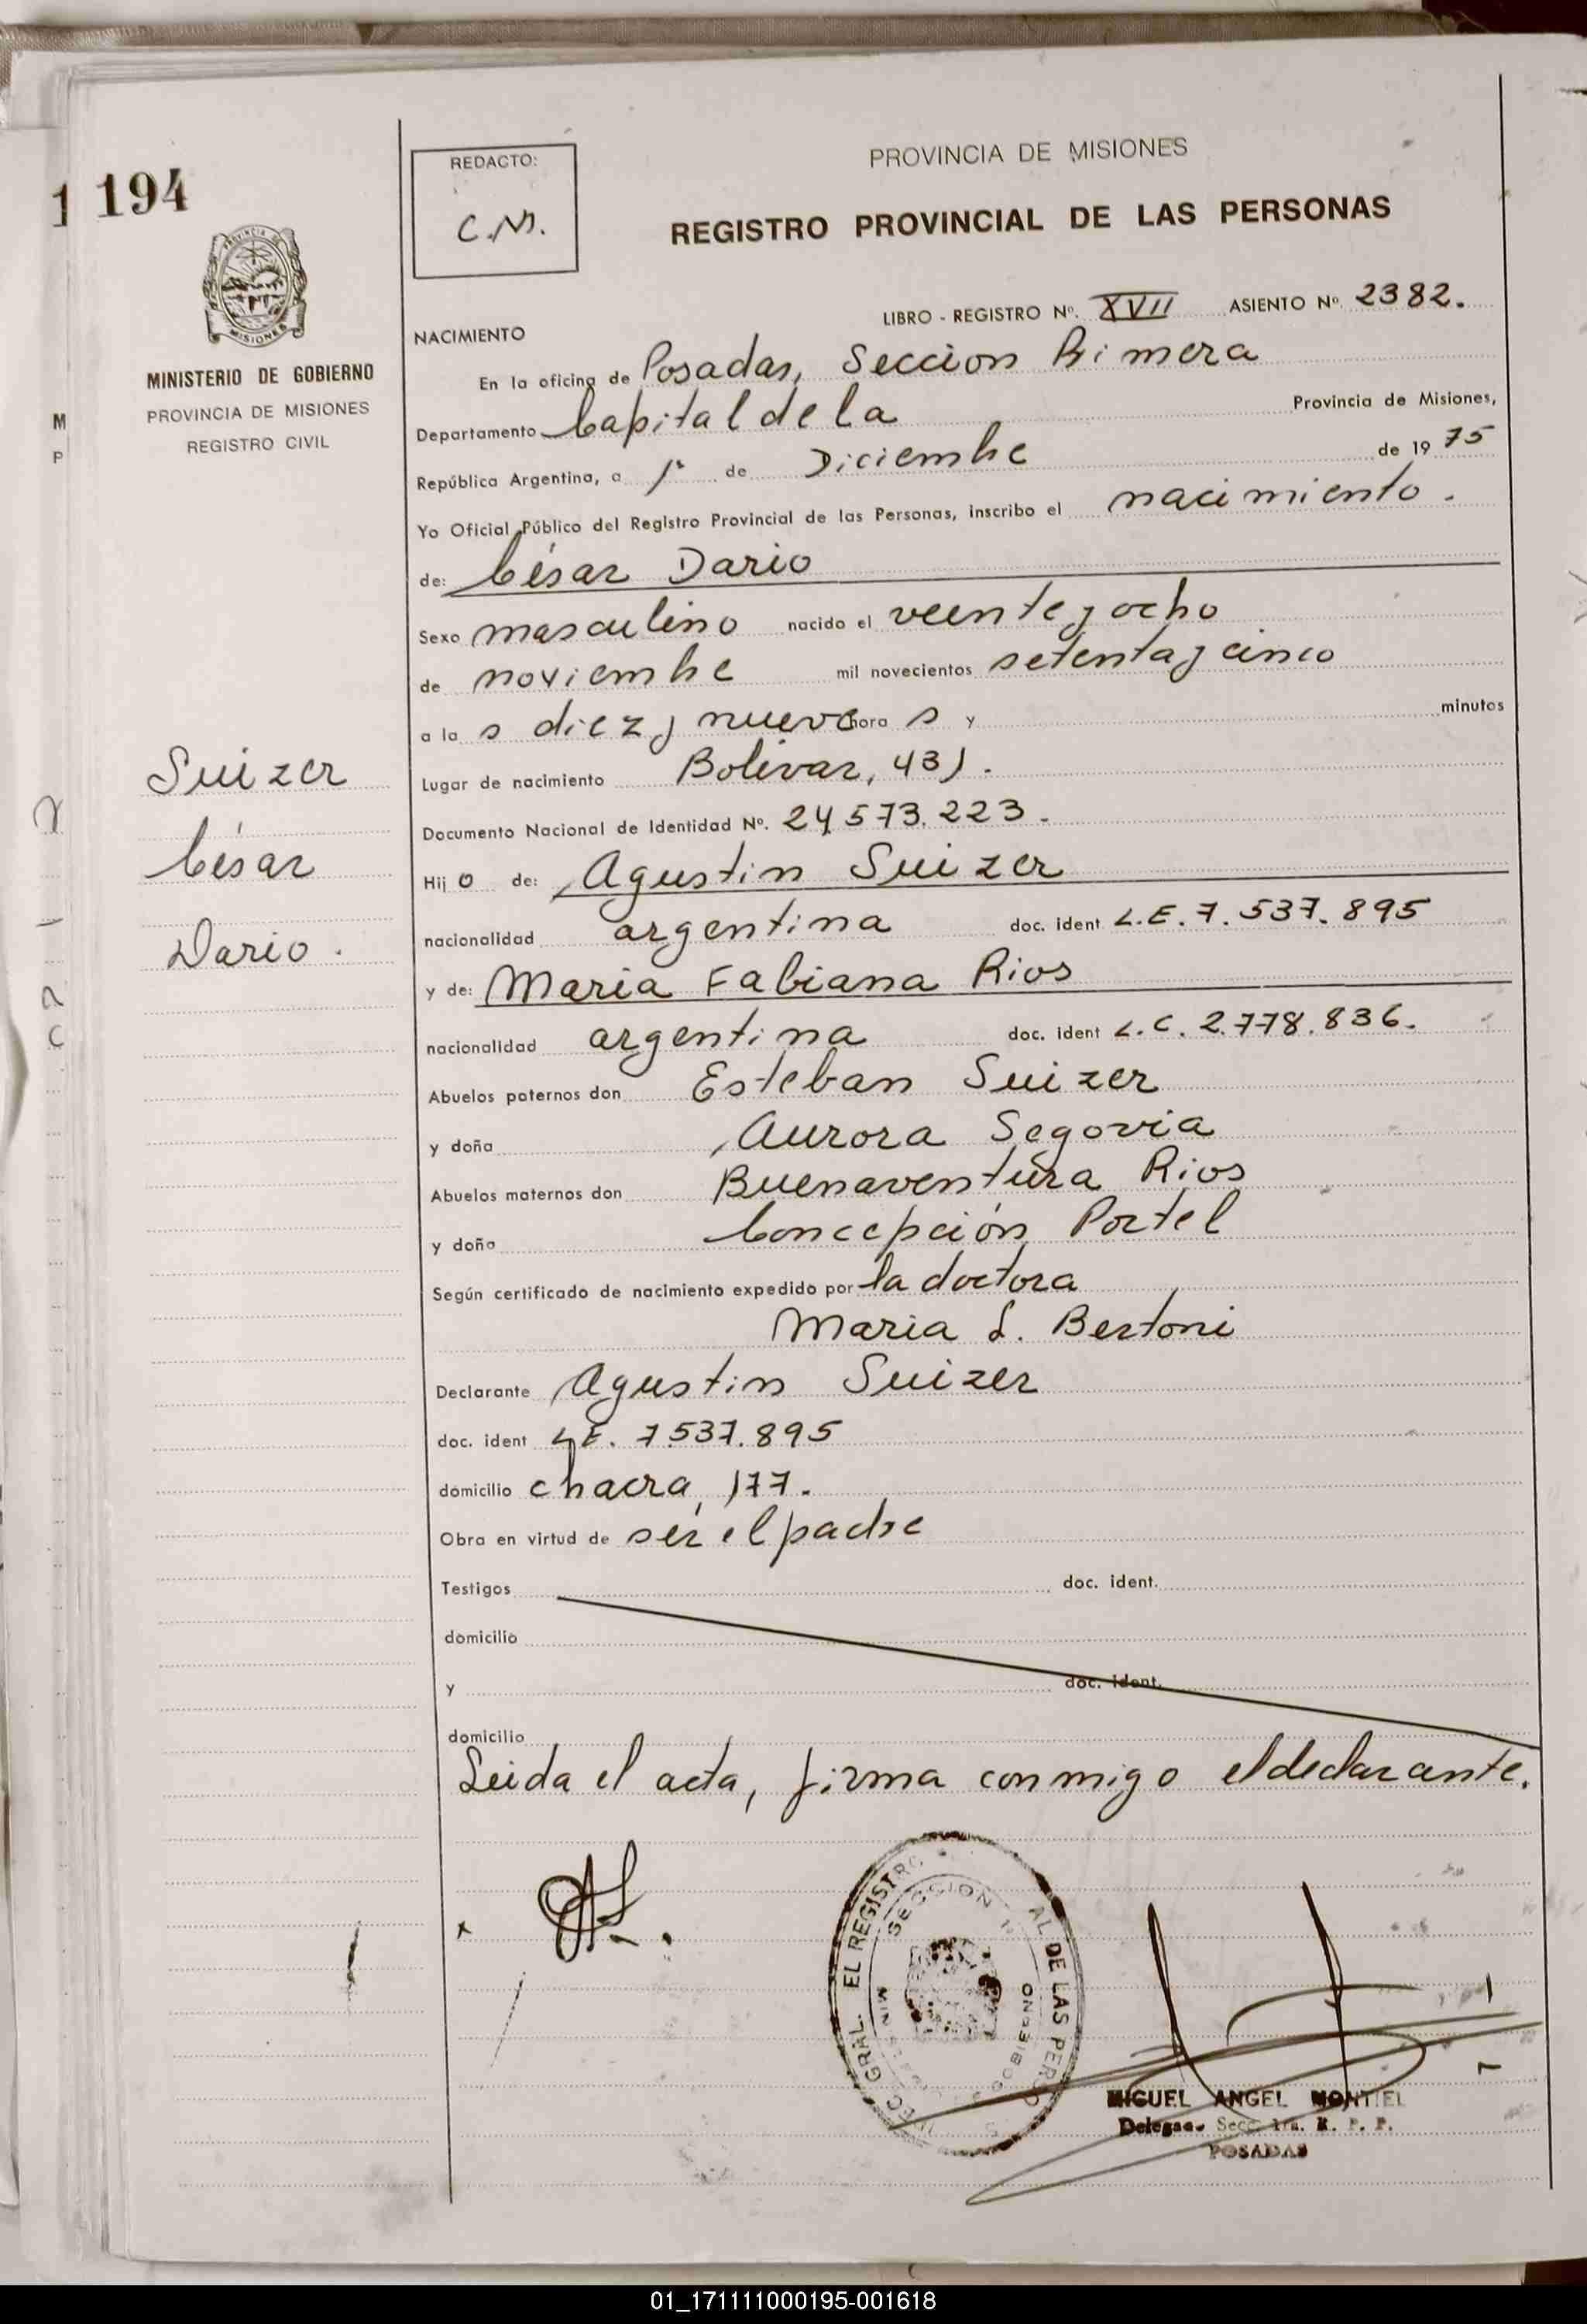 1 194
REDACTO:
C.M.
PROVINCIA DE MISIONES
REGISTRO PROVINCIAL DE LAS PERSONAS
MINISTERIO DE GOBIERNO
PROVINCIA DE MISIONES
REGISTRO CIVIL
M
P
LIBRO - REGISTRO Nº. XVII ASIENTO Nº. 2382.
NACIMIENTO
En la oficina de Posadas, Seccion Primera
Departamento Capital de la Provincia de Misiones,
República Argentina, a 1º de Diciembre de 1975
Yo Oficial Público del Registro Provincial de las Personas, inscribo el nacimiento.
de: César Dario
Sexo masculino nacido el veinte y ocho
de noviembre mil novecientos setenta y cinco
a la s diez y nueve hora s y minutos
Lugar de nacimiento Bolivar, 431.
Documento Nacional de Identidad Nº. 24.573.223.
Hij o de: Agustin Suizer
nacionalidad argentina doc. ident L.E. 7.537.895
y de: Maria Fabiana Rios
nacionalidad argentina doc. ident L.C. 2.778.836.
Abuelos paternos don Esteban Suizer
y doña Aurora Segovia
Abuelos maternos don Buenaventura Rios
y doña Concepción Portel
Según certificado de nacimiento expedido por la doctora
Maria L. Bertoni
Declarante Agustin Suizer
doc. ident L.E. 7.537.895
domicilio chacra, 177.
Obra en virtud de ser el padre
Testigos doc. ident.
domicilio
y doc. ident.
domicilio
Leida el acta, firma conmigo el declarante.
Suizer
César
Dario.
GRAL. EL REGISTRO AL DE LAS PERSO
SECCION 1ª
MIGUEL ANGEL MONTIEL
Delegado Secc. 1ra. R. P. P.
POSADAS
01_171111000195-001618